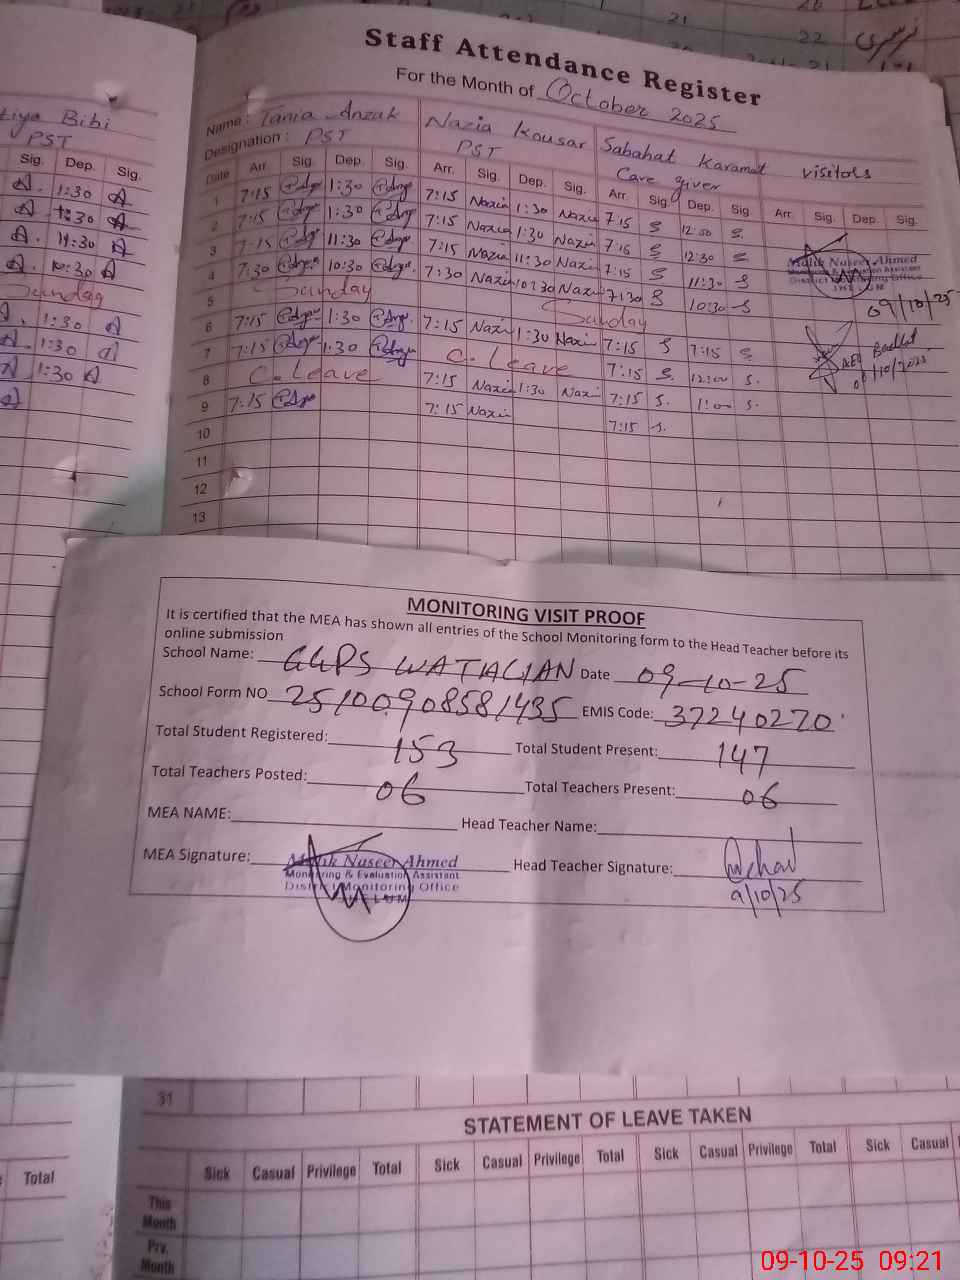 21
22
نرسری
Staff Attendance Register
For the Month of October 2025
Liya Bibi
PST
Sig. Dep. Sig.
A. 1:30 A
A. 1:30 A
A. 11:30 A
A. 10:30 A
Sunday
A. 1:30 A
A. 1:30 A
A 1:30 A
Name: Tania Anzak Nazia Kousar Sabahat Karamat visitors
Designation: PST PST Care giver
Date Arr. Sig. Dep. Sig. Arr. Sig. Dep. Sig. Arr. Sig. Dep. Sig. Arr. Sig. Dep. Sig.
1 7:15 1:30 7:15 Nazia 1:30 Nazia 7:15 S 12:50 S.
2 7:15 1:30 7:15 Nazia 1:30 Nazia 7:15 S 12:30 S
3 7:15 11:30 7:15 Nazia 11:30 Nazia 7:15 S 11:30 S
4 7:30 10:30 7:30 Nazia 10:30 Nazia 7:30 S 10:30 S
5 Sunday Sunday
6 7:15 1:30 7:15 Nazia 1:30 Nazia 7:15 S 7:15 S
7 7:15 1:30 C. Leave 7:15 S. 12:00 S.
8 C. Leave 7:15 Nazia 1:30 Nazia 7:15 S. 1:00 S.
9 7:15 7:15 Nazia 7:15 S.
10
11
12
13
Malik Naseer Ahmed
Monitoring & Evaluation Assistant
District Monitoring Office
JHELUM
09/10/25
MONITORING VISIT PROOF
It is certified that the MEA has shown all entries of the School Monitoring form to the Head Teacher before its
online submission
School Name: GGPS WATALIAN Date 09-10-25
School Form NO 25100908581435 EMIS Code: 37240270
Total Student Registered: 153 Total Student Present: 147
Total Teachers Posted: 06 Total Teachers Present: 06
MEA NAME: Head Teacher Name:
MEA Signature: Head Teacher Signature:
Malik Naseer Ahmed
Monitoring & Evaluation Assistant
District Monitoring Office
JHELUM
9/10/25
31
STATEMENT OF LEAVE TAKEN
Total Sick Casual Privilege Total Sick Casual Privilege Total Sick Casual Privilege Total Sick Casual
This
Month
Prv.
Month
09-10-25 09:21